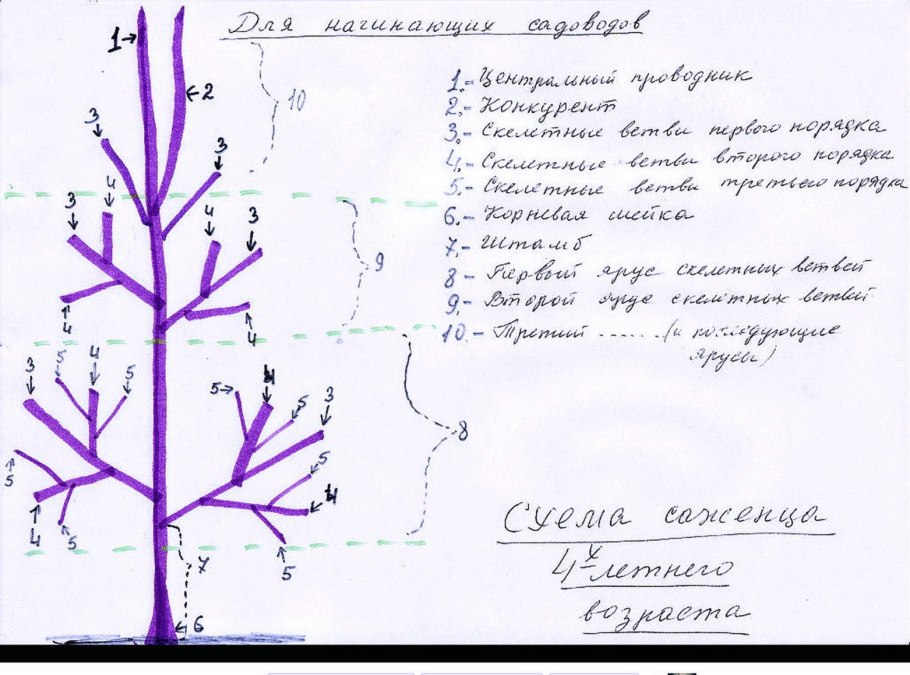 Для начинающих садоводов
1.- Центральный проводник
2.- Конкурент
3.- Скелетные ветви первого порядка
4.- Скелетные ветви второго порядка
5.- Скелетные ветви третьего порядка
6.- Корневая шейка
7.- Штамб
8 - Первый ярус скелетных ветвей
9.- Второй ярус скелетных ветвей
10.- Третий ...... (и последующие
ярусы)
Схема саженца
4х-летнего
возраста
1
2
10
3
3
3
4
4
3
9
4
4
3
5
4
5
5
4
5
3
8
5
5
4
4
5
5
7
6